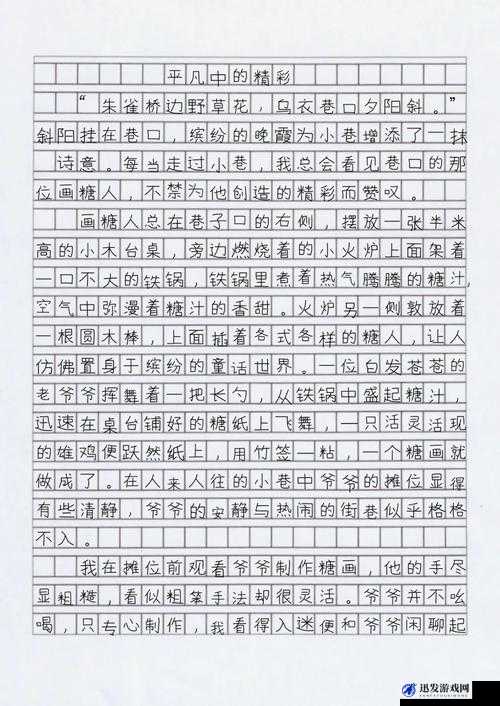 平凡中的精彩
“朱雀桥边野草花，乌衣巷口夕阳斜。”
斜阳挂在巷口，缤纷的晚霞为小巷增添了一抹
诗意。每当走过小巷，我总会看见巷口的那
位画糖人，不禁为他创造的精彩而赞叹。
画糖人总在巷子口的右侧，摆放一张半米
高的小木台桌，旁边燃烧着的小火炉上面架着
一口不大的铁锅，铁锅里煮着热气腾腾的糖汁，
空气中弥漫着糖汁的香甜。火炉另一侧敦放着
一根圆木棒，上面插着各式各样的糖人，让人
仿佛置身于缤纷的童话世界。一位白发苍苍的
老爷爷挥舞着一把长勺，从铁锅中盛起糖汁，
迅速在桌台铺好的糖纸上飞舞，一只活灵活现
的雄鸡便跃然纸上，用竹签一粘，一个糖画就
做成了。在人来人往的小巷中爷爷的摊位显得
有些清静，爷爷的安静与热闹的街巷似乎格格
不入。
我在摊位前观看爷爷制作糖画，他的手尽
显粗糙，看似粗笨手法却很灵活。爷爷并不吆
喝，只专心制作，我看得入迷便和爷爷闲聊起
迅发游戏网